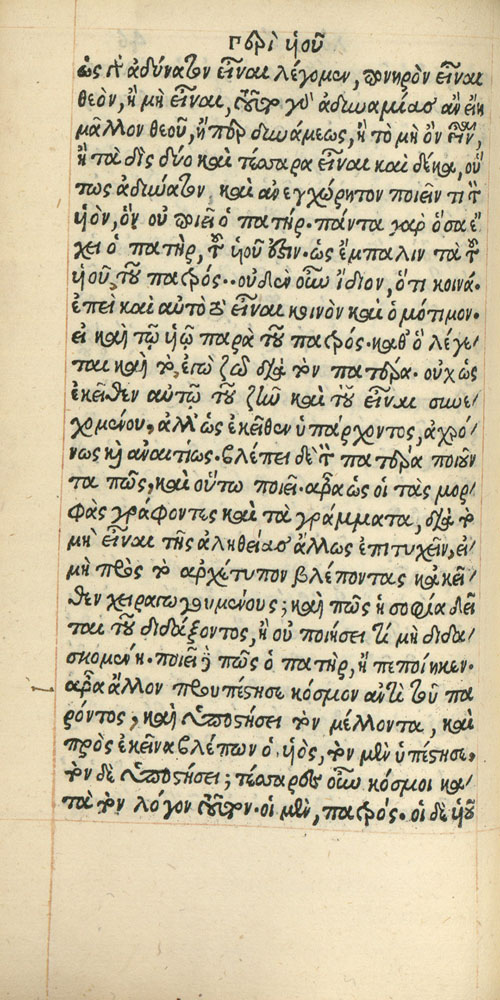 Περὶ ἡοῦ
ὡς δ' ἀδύνατον εἶναι λέγομεν, πονηρὸν εἶναι
θεὸν, ἢ μὴ εἶναι, τοῦτο γὰρ ἀδυναμίας ἂν εἴη
μᾶλλον θεοῦ, ἤπερ δυνάμεως, ἢ τὸ μὴ ὂν εἶναι,
ἢ τὰ δὶς δύο καὶ τέσσαρα εἶναι καὶ δέκα, οὕ
πως ἀδύνατον, καὶ ἀνεγχώρητον ποιεῖν τι τὸν
ἡὸν, ὃν οὐ ποιεῖ ὁ πατήρ. πάντα γὰρ ὅσα ἔ
χει ὁ πατὴρ, τοῦ ἡοῦ ἐστιν. ὡς ἔμπαλιν τὰ τοῦ
ἡοῦ, τοῦ πατρός. οὐδὲν οὖν ἴδιον, ὅτι κοινά.
ἐπεὶ καὶ αὐτὸ τὸ εἶναι κοινὸν καὶ ὁμότιμον.
εἰ καὶ τῷ ἡῷ παρὰ τοῦ πατρός. καθ' ὃ λέγε
ται καὶ τὸ, ἐγὼ ζῶ διὰ τὸν πατέρα. οὐχ ὡς
ἐκεῖθεν αὐτῷ τοῦ ζῆν καὶ τοῦ εἶναι συνε/
χομένου, ἀλλ' ὡς ἐκεῖθεν ὑπάρχοντος, ἀχρό/
νως καὶ ἀναιτίως. βλέπει δὲ τὸν πατέρα ποιοῦν
τα πῶς, καὶ οὕτω ποιεῖ. ἆρα ὡς οἱ τὰς μορ/
φὰς γράφοντες καὶ τὰ γράμματα, διὰ τὸ
μὴ εἶναι τῆς ἀληθείας ἄλλως ἐπιτυχεῖν, εἰ/
μὴ πρὸς τὸ ἀρχέτυπον βλέποντας κἀκεῖ/
θεν χειραγωγουμένους; καὶ πῶς ἡ σοφία δεῖ
ται τοῦ διδάξοντος, ἢ οὐ ποιήσει τι μὴ διδα/
σκομένη. ποιεῖ δὲ πῶς ὁ πατὴρ, ἢ πεποίηκεν.
ἆρα ἄλλον προυπέστησε κόσμον ἀντὶ τοῦ πα
ρόντος, καὶ ὑποστήσει τὸν μέλλοντα, καὶ
πρὸς ἐκεῖνα βλέπων ὁ ἡὸς, τὸν μὲν ὑπέστησε,
τὸν δὲ ὑποστήσει; τέσσαρες οὖν κόσμοι κα/
τὰ τὸν λόγον τοῦτον. οἱ μὲν, πατρός. οἱ δὲ ἡοῦ